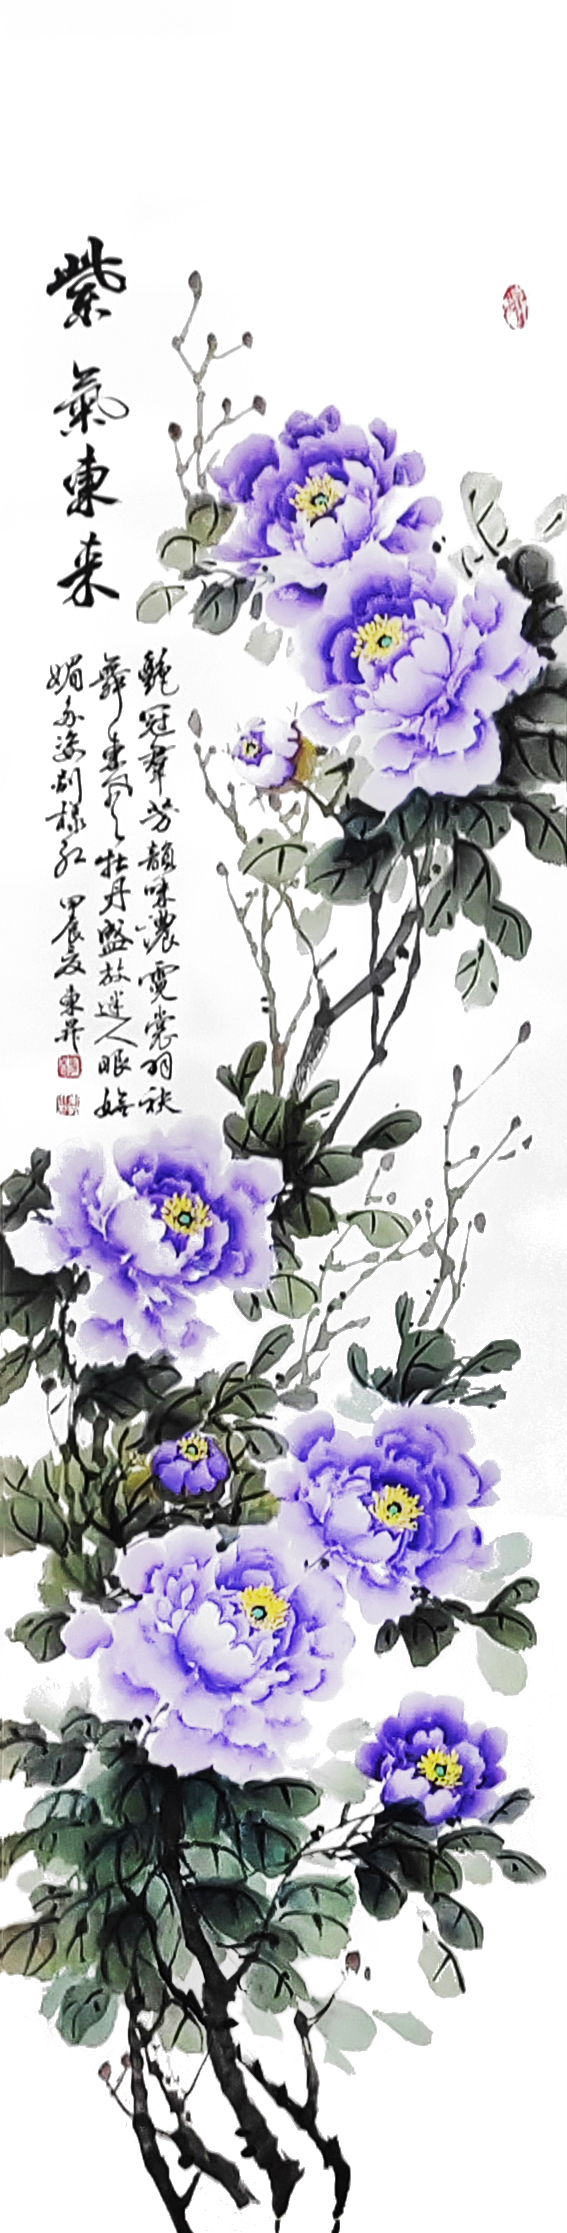 紫氣東来
艷冠群芳韻味濃霓裳羽袂
舞東風牡丹盛放迷人眼
媚多姿别樣紅 甲辰夏東昇